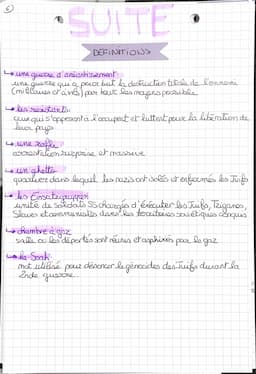 SUITE
DEFINITIONS
une guerre d'anéantissement
une guerre qui a pour but la destruction totale de l'ennemi
(militaires et civils) par tout les moyens possible
les résistants
ceux qui s'opposent à l'occupant et luttent pour la libération de
leur pays
une rafle
arrestation surprise et massive
un ghetto
quartier dans lequel les nazis ont isolés et enfermés les Juifs
les Einsatzgruppen
unité de soldats SS chargés d'éxécuter les Juifs, Tziganes,
Slaves et communistes dans les territoires soviétiques conquis
chambre à gaz
salle où les déportés sont réunis et asphixiés par le gaz
la Soah
mot utilisé pour dénoncer le génocides des Juifs durant la
2nde guerre.